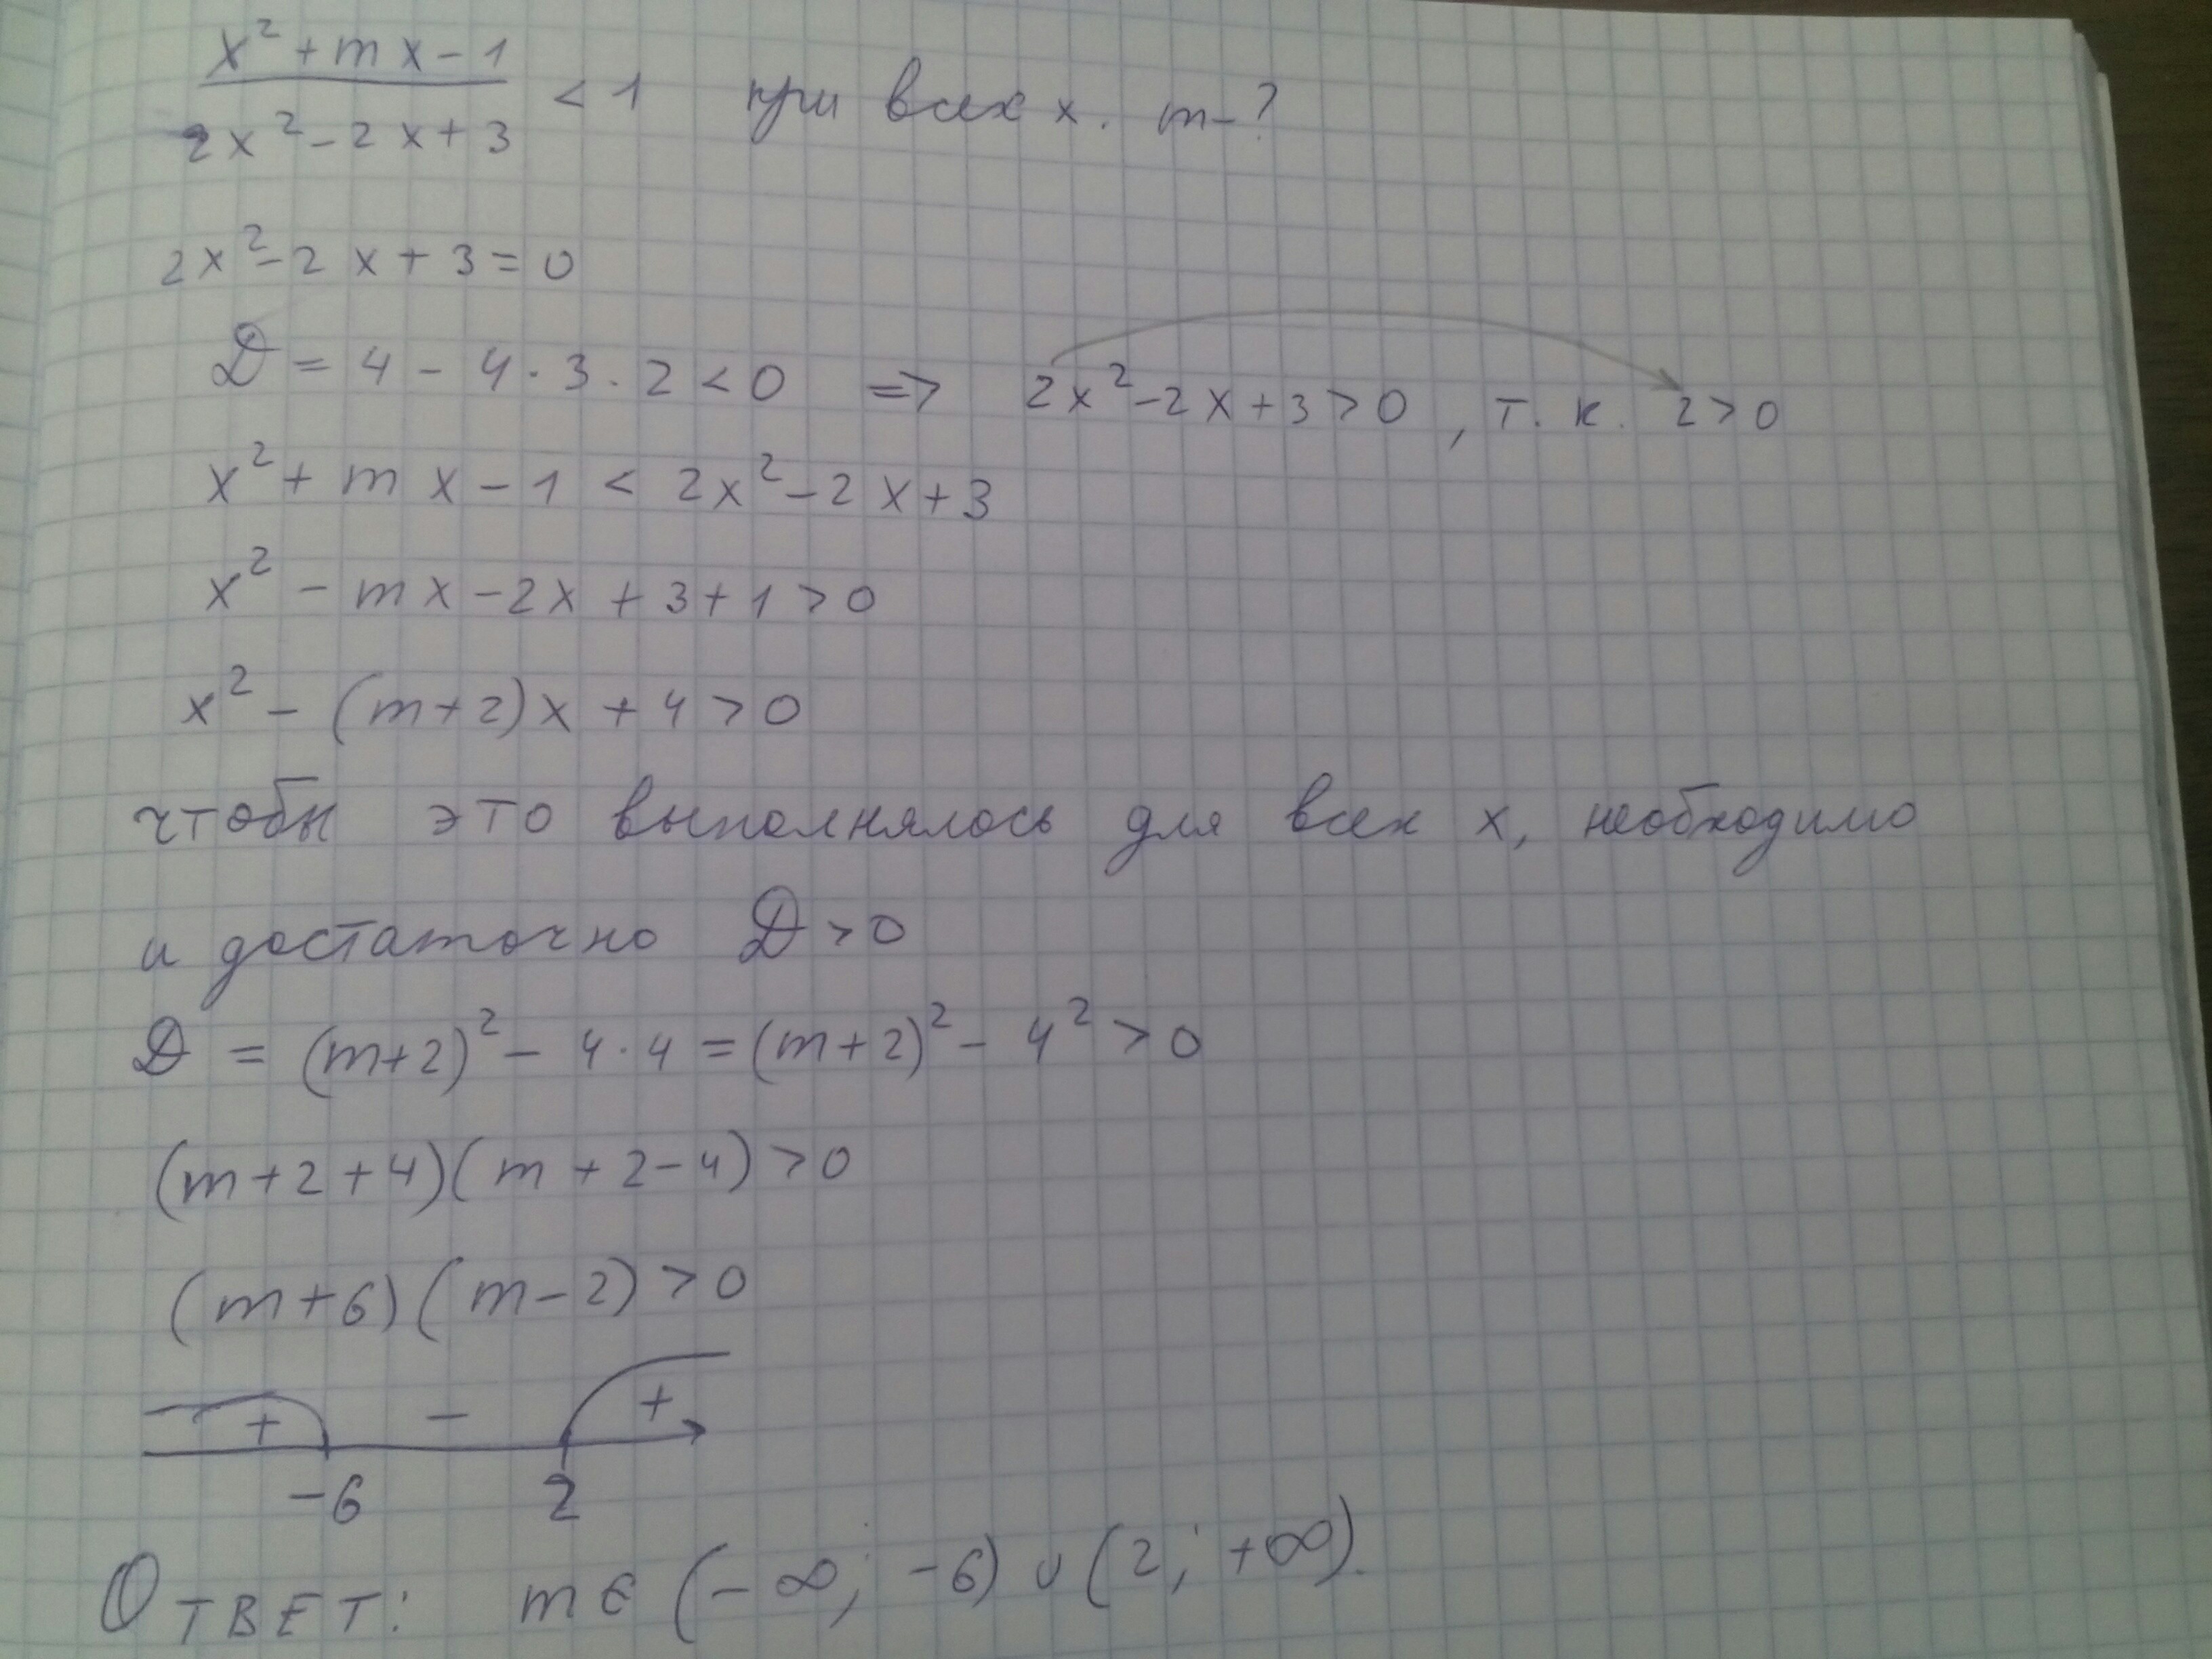 x² + mx - 1
2x² - 2x + 3 < 1 при всех x. m - ?
2x² - 2x + 3 = 0
D = 4 - 4 · 3 · 2 < 0 => 2x² - 2x + 3 > 0, т. к. 2 > 0
x² + mx - 1 < 2x² - 2x + 3
x² - mx - 2x + 3 + 1 > 0
x² - (m+2)x + 4 > 0
чтобы это выполнялось для всех x, необходимо
и достаточно D > 0
D = (m+2)² - 4 · 4 = (m+2)² - 4² > 0
(m+2+4)(m+2-4) > 0
(m+6)(m-2) > 0
+ - +
-6 2
Ответ: m ∈ (-∞; -6) ∪ (2; +∞).